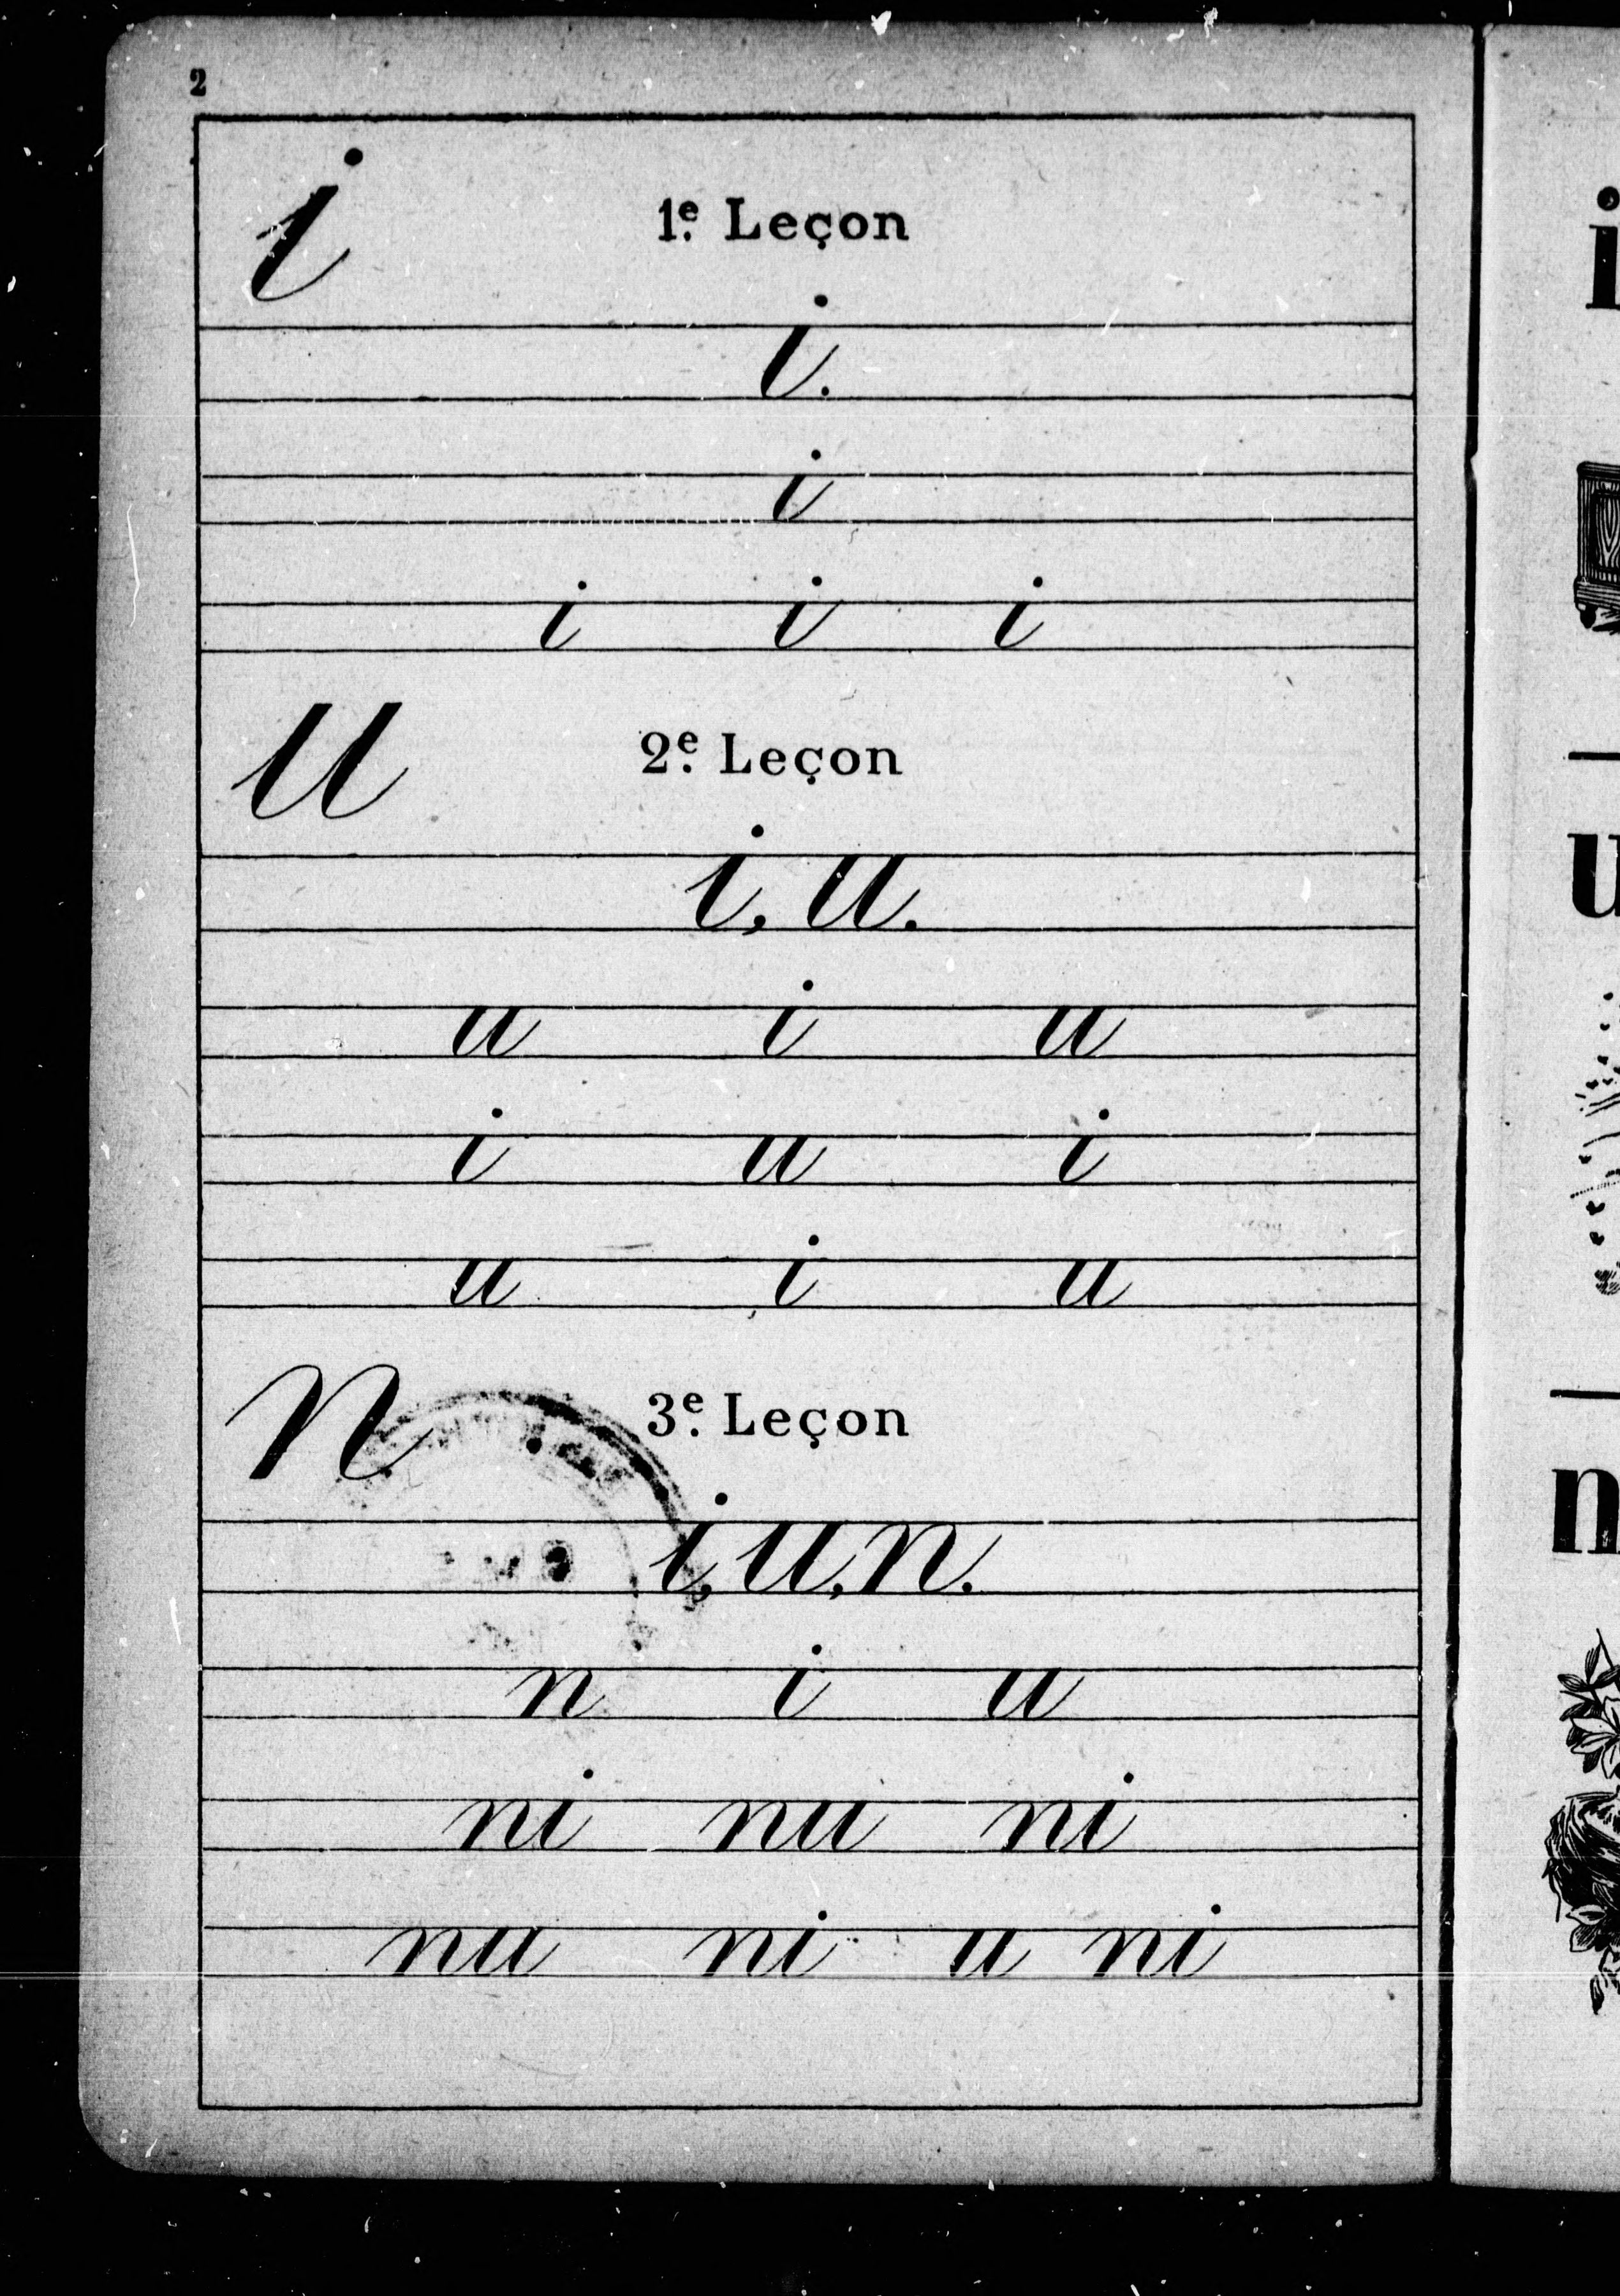 2
i 1e. Leçon
i.
i
i i i
u 2e. Leçon
i, u.
u i u
i u i
u i u
n 3e. Leçon
i, u, n.
n i u
ni nu ni
nu ni u ni
i
u
n